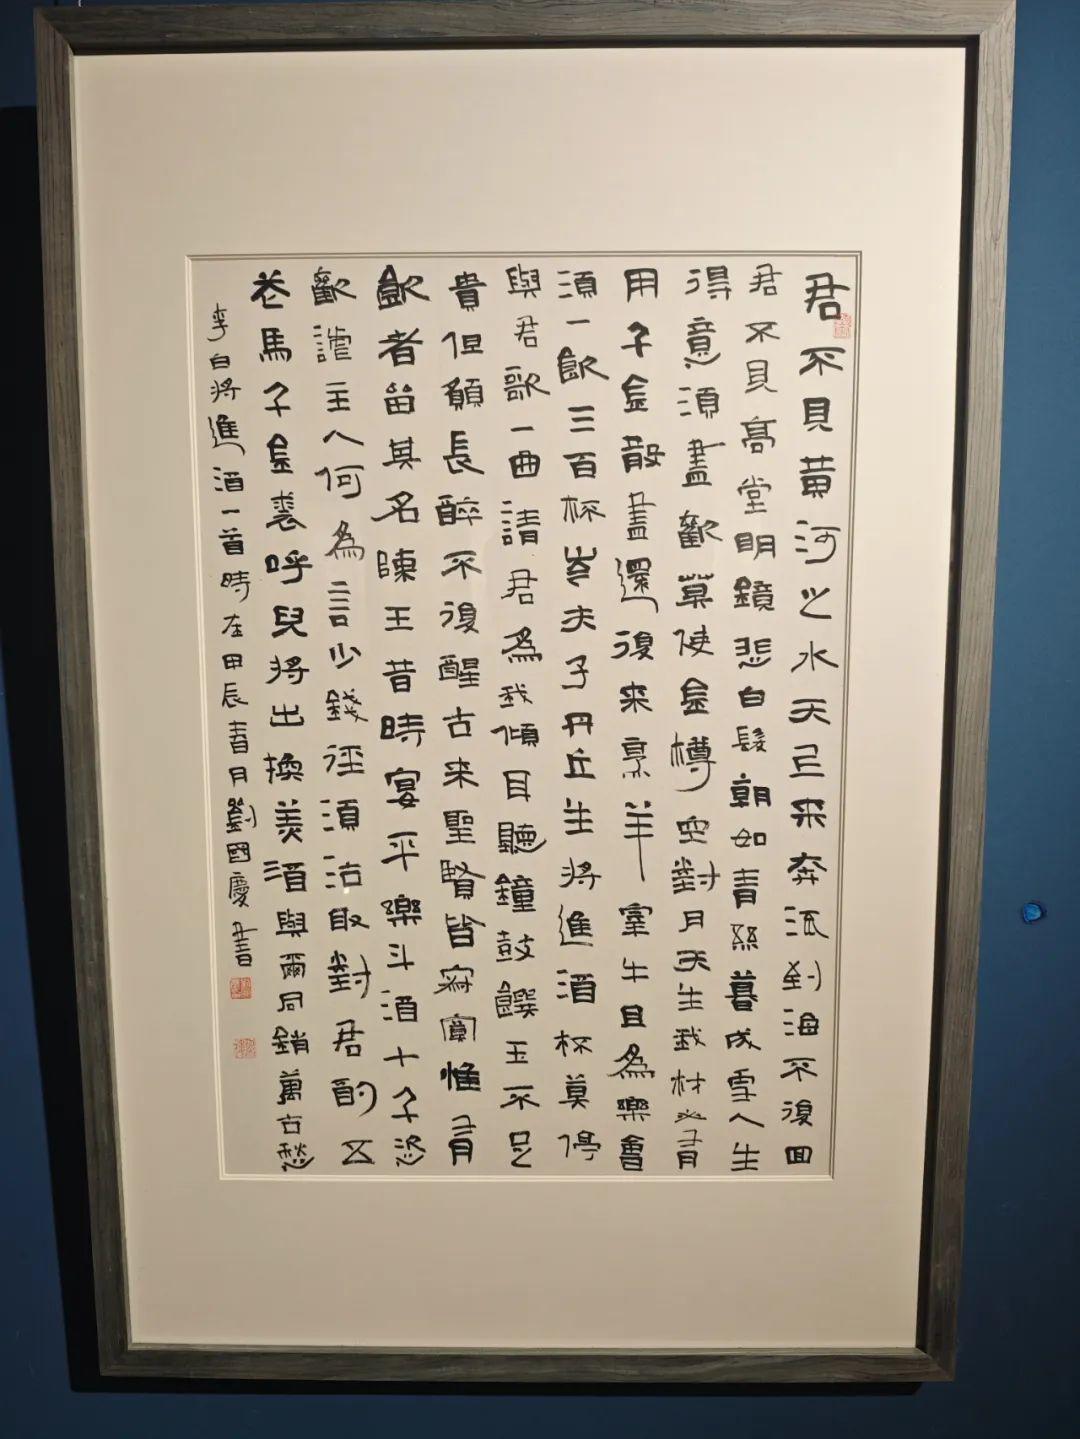 君不見黃河之水天上来奔流到海不復回
君不見高堂明鏡悲白髮朝如青絲暮成雪人生
得意須盡歡莫使金樽空對月天生我材必有
用千金散盡還復来烹羊宰牛且為樂會
須一飲三百杯岑夫子丹丘生將進酒杯莫停
與君歌一曲請君為我傾耳聽鐘鼓饌玉不足
貴但願長醉不復醒古来聖賢皆寂寞惟有
飲者留其名陳王昔時宴平樂斗酒十千恣
歡謔主人何為言少錢徑須沽取對君酌五
花馬千金裘呼兒將出換美酒與爾同銷萬古愁
李白將進酒一首時在甲辰春月劉國慶書